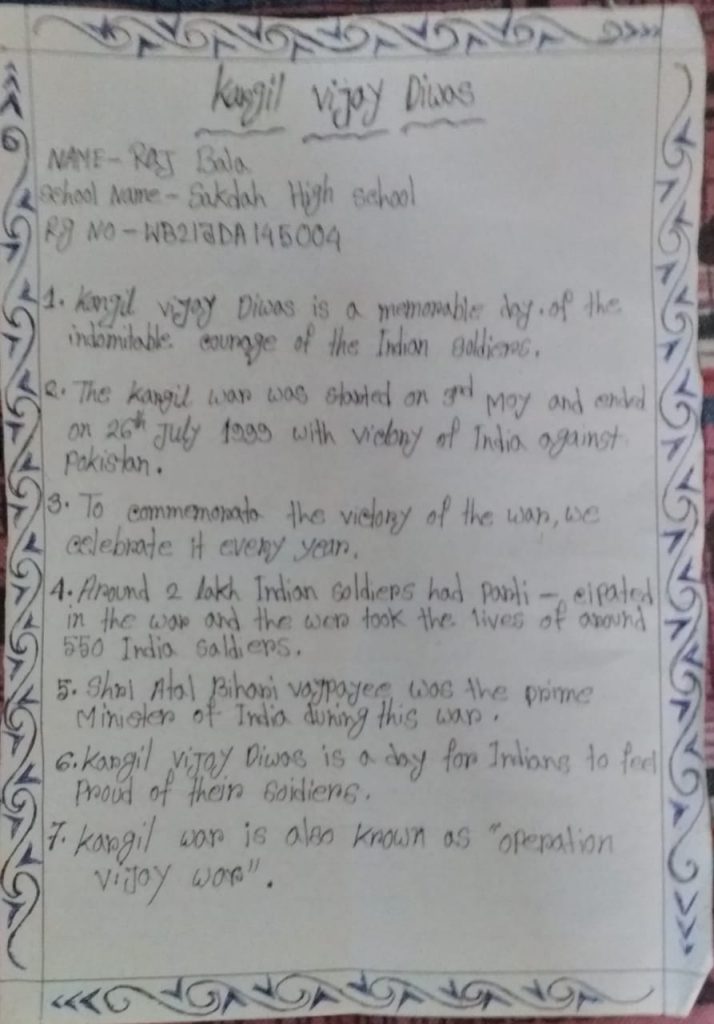 Kargil Vijay Diwas
NAME - Raj Bala
School Name - Sakdah High School
Rg NO - WB21JDA145004
1. Kargil vijay Diwas is a memorable day.of the
indomitable courage of the Indian soldiers.
2. The Kargil war was started on 3rd May and ended
on 26th July 1999 with victory of India against
Pakistan.
3. To commemorate the victory of the war, we
celebrate it every year.
4. Around 2 lakh Indian soldiers had parti - cipated
in the war and the war took the lives of around
550 India saldiers.
5. Shri Atal Bihari vajpayee was the prime
Minister of India during this war.
6. Kargil Vijay Diwas is a day for Indians to feel
Proud of their soldiers.
7. Kargil war is also known as "operation
vijay war".